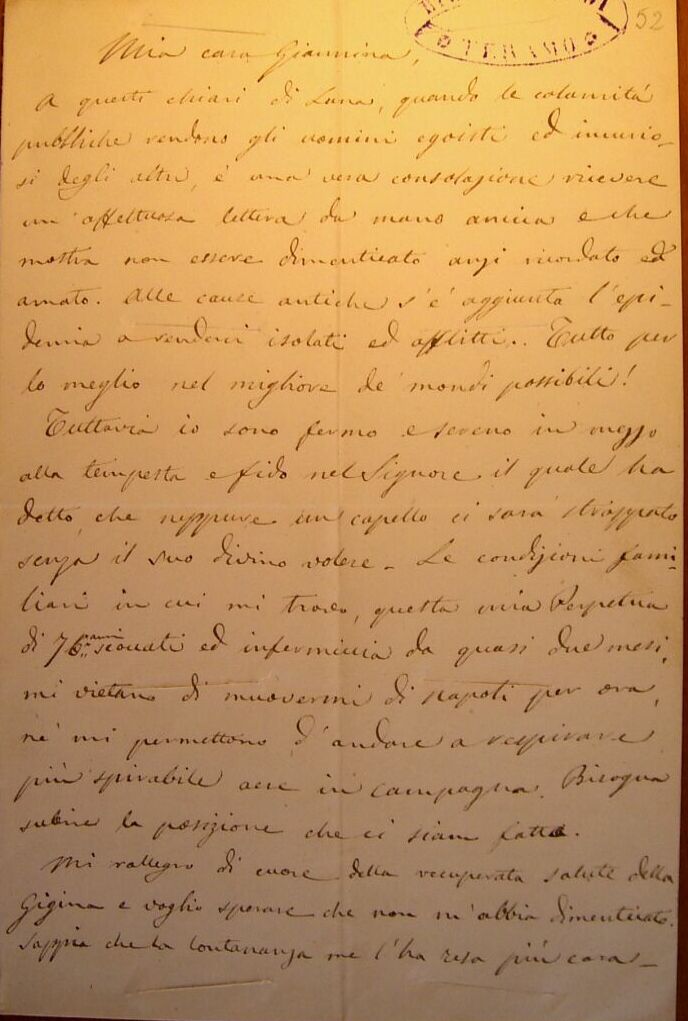 52
TERAMO
Mia cara Giannina,
A questi chiari di Luna, quando le calamità
pubbliche rendono gli uomini egoisti ed incurio-
si degli altri, è una vera consolazione ricevere
un' affettuosa lettera da mano amica e che
mostra non essere dimenticato anzi ricordato ed
amato. Alle cause antiche s'è aggiunta l'epi-
demia a renderci isolati ed afflitti.. Tutto per
lo meglio nel migliore de' mondi possibili!
Tuttavia io sono fermo e sereno in mezzo
alla tempesta e fido nel Signore il quale ha
detto, che neppure un capello ci sarà strappato
senza il suo divino volere - Le condizioni fami-
liari in cui mi trovo, questa mia Perpetua
di 76 anni suonati ed infermiccia da quasi due mesi,
mi vietano di muovermi di Napoli per ora,
nè mi permettono d'andare a respirare
più spirabile aere in campagna. Bisogna
subire la posizione che ci siam fatta.
Mi rallegro di cuore della recuperata salute della
Gigina e voglio sperare che non m'abbia dimenticato.
Sappia che la lontananza me l'ha resa più cara -